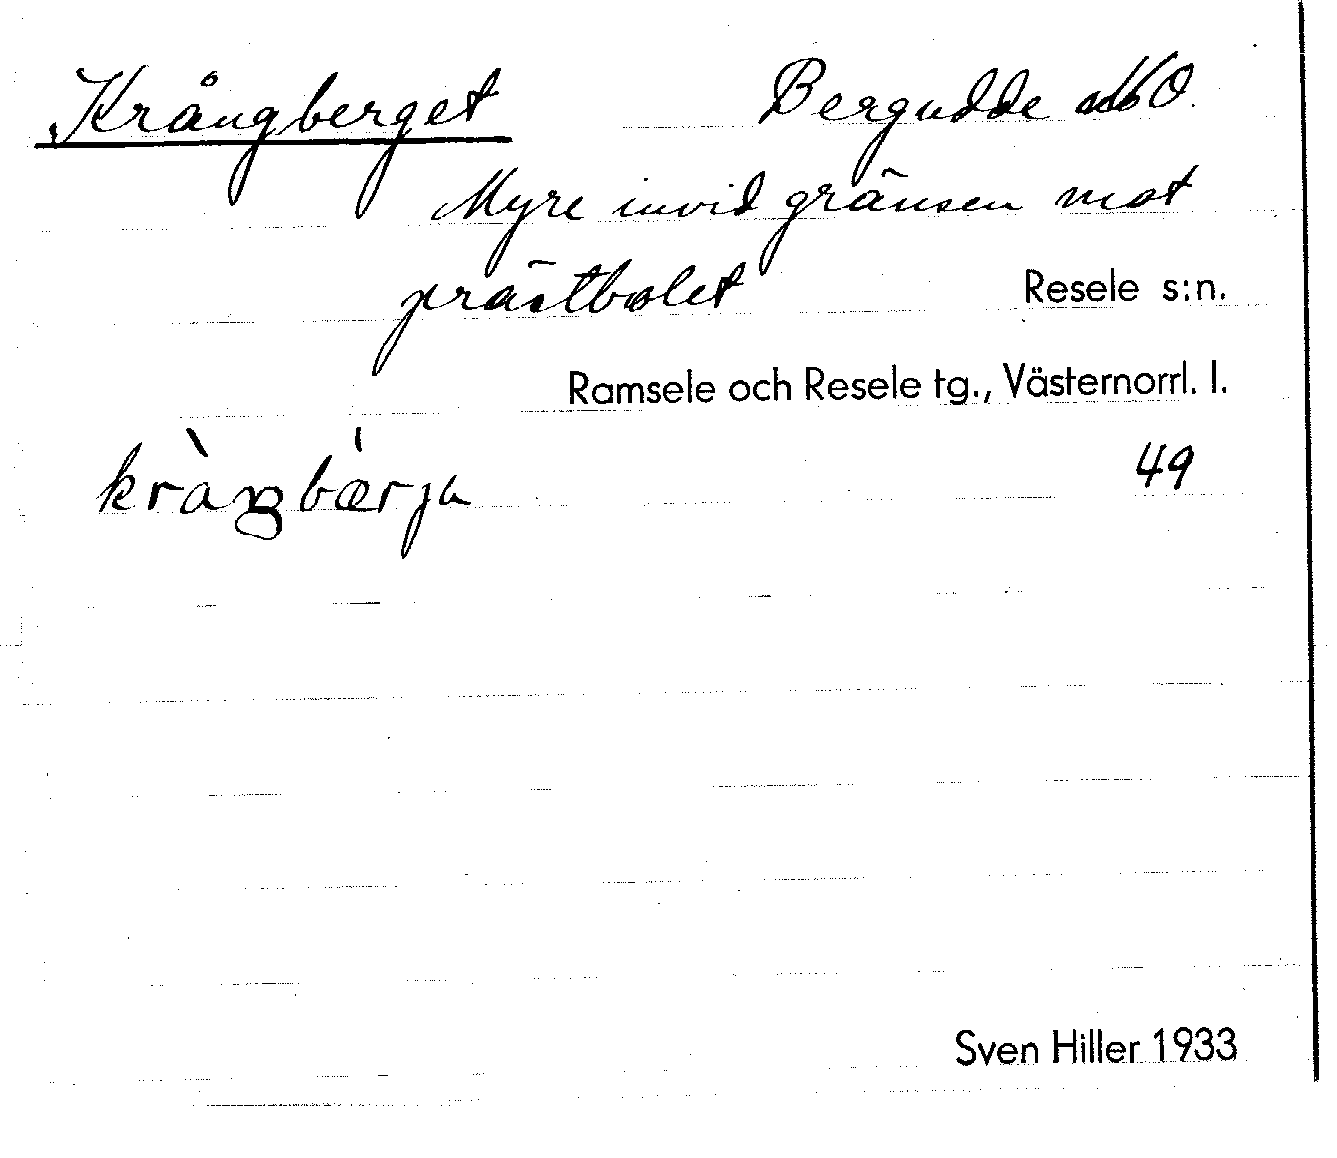 Krångberget Bergudde NO.
Myre invid gränsen mot
prästbolet Resele s:n.
Ramsele och Resele tg., Västernorrl. l.
kràŋbærja 49
Sven Hiller 1933